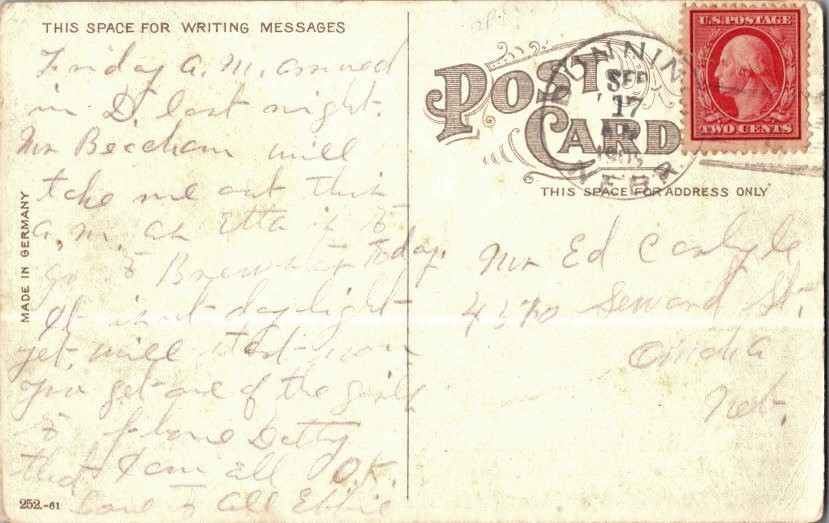 THIS SPACE FOR WRITING MESSAGES
Friday a.m. arrived
in D. last night.
Mr Beecham will
take me out this
a.m. as Etta is to
go to Brewster today.
It isn't day light
yet, will start soon
you get one of the girls
to phone Detty
that I am all O.K.
Love to all
MADE IN GERMANY
252.-61
POST CARD
DUNNING
SEP
17
NEBR.
U.S. POSTAGE
TWO CENTS
THIS SPACE FOR ADDRESS ONLY
Mr Ed Carlyle
Seward St.
Omaha
Neb.